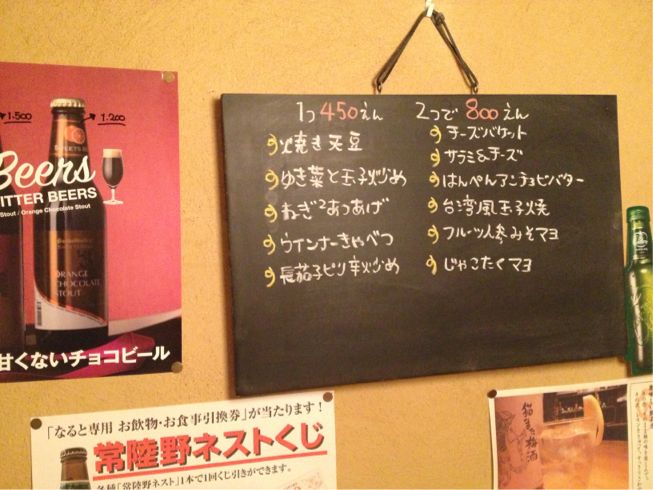 1つ 450えん 2つで 800えん
焼き天豆
ゆき菜と玉子炒め
ねぎ2あつあげ
ウインナーきゃべつ
長茄子ピリ辛炒め
チーズバケット
サラミ&チーズ
はんぺんアンチョビバター
台湾風玉子焼
フルーツ人参みそマヨ
じゃこたくマヨ
1.500
1.200
Beers
ITTER BEERS
Stout / Orange Chocolate Stout
SWEETS BEER
ORANGE
CHOCOLATE
STOUT
甘くないチョコビール
「なると専用 お飲物・お食事引換券」が当たります!
常陸野ネストくじ
各種「常陸野ネスト」1本で1回くじ引きができます。
梅酒